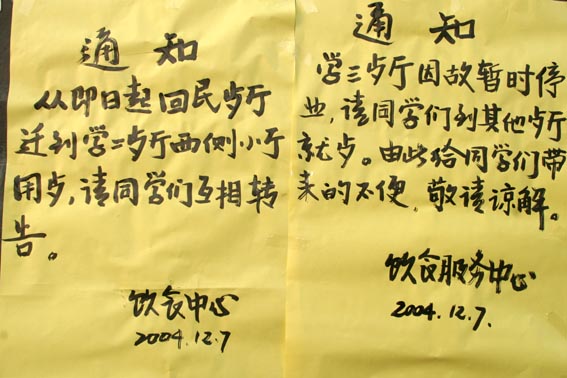 通知
从即日起回民歺厅
迁到学二歺厅西侧小厅
用歺，请同学们互相转
告。
饮食中心
2004.12.7
通知
学三歺厅因故暂时停
业，请同学们到其他歺厅
就歺。由此给同学们带
来的不便，敬请谅解。
饮食服务中心
2004.12.7.